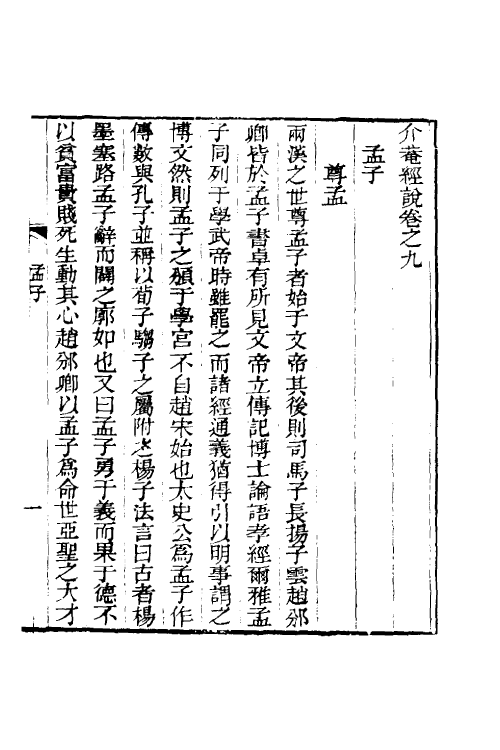 介菴經說卷之九
孟子
尊孟
兩漢之世尊孟子者始于文帝其後則司馬子長揚子雲趙邠
卿皆於孟子書卓有所見文帝立傳記博士論語孝經爾雅孟
子同列于學武帝時雖罷之而諸經通義猶得引以明事謂之
博文然則孟子之頒于學宮不自趙宋始也太史公爲孟子作
傳數與孔子並稱以荀子騶子之屬附之楊子法言曰古者楊
墨塞路孟子辭而闢之廓如也又曰孟子勇于義而果于德不
以貧富貴賤死生動其心趙邠卿以孟子爲命世亞聖之大才
孟子
一